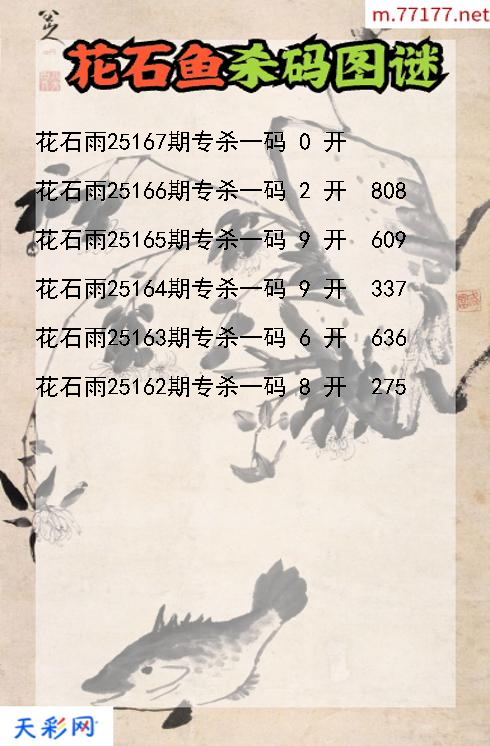 m.77177.net
八
花石鱼杀码图谜
花石雨25167期专杀一码 0 开
花石雨25166期专杀一码 2 开 808
花石雨25165期专杀一码 9 开 609
花石雨25164期专杀一码 9 开 337
花石雨25163期专杀一码 6 开 636
花石雨25162期专杀一码 8 开 275
天彩网